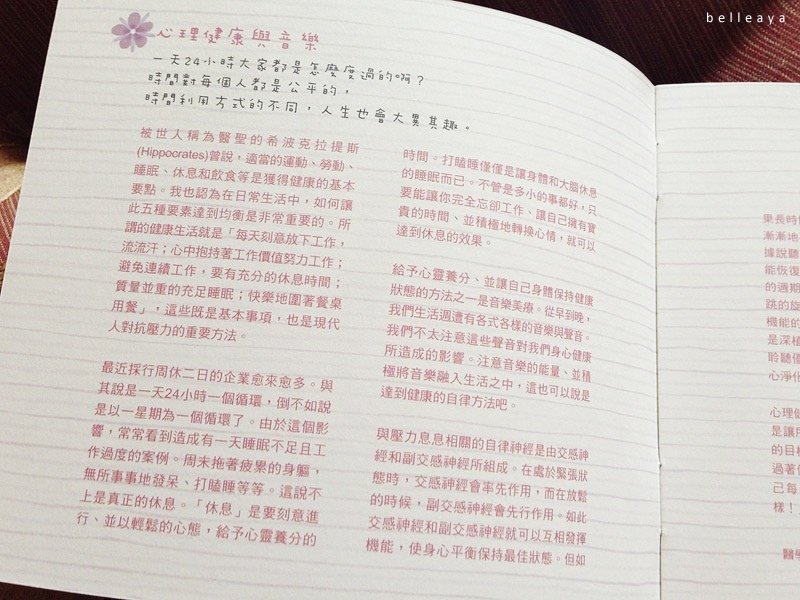 belleaya
心理健康與音樂
一天24小時大家都是怎麼度過的啊？
時間對每個人都是公平的，
時間利用方式的不同，人生也會大異其趣。
被世人稱為醫聖的希波克拉提斯
(Hippocrates)曾說，適當的運動、勞動、
睡眠、休息和飲食等是獲得健康的基本
要點。我也認為在日常生活中，如何讓
此五種要素達到均衡是非常重要的。所
謂的健康生活就是「每天刻意放下工作，
流流汗；心中抱持著工作價值努力工作；
避免連續工作，要有充分的休息時間；
質量並重的充足睡眠；快樂地圍著餐桌
用餐」，這些既是基本事項，也是現代
人對抗壓力的重要方法。
最近採行周休二日的企業愈來愈多。與
其說是一天24小時一個循環，倒不如說
是以一星期為一個循環了。由於這個影
響，常常看到造成有一天睡眠不足且工
作過度的案例。周末拖著疲累的身軀，
無所事事地發呆、打瞌睡等等。這說不
上是真正的休息。「休息」是要刻意進
行、並以輕鬆的心態，給予心靈養分的
時間。打瞌睡僅僅是讓身體和大腦休息
的睡眠而已。不管是多小的事都好，只
要能讓你完全忘卻工作、讓自己擁有寶
貴的時間、並積極地轉換心情，就可以
達到休息的效果。
給予心靈養分、並讓自己身體保持健康
狀態的方法之一是音樂美療。從早到晚，
我們生活週遭有各式各樣的音樂與聲音。
我們不太注意這些聲音對我們身心健康
所造成的影響。注意音樂的能量、並積
極將音樂融入生活之中，這也可以說是
達到健康的自律方法吧。
與壓力息息相關的自律神經是由交感神
經和副交感神經所組成。在處於緊張狀
態時，交感神經會率先作用，而在放鬆
的時候，副交感神經會先行作用。如此
交感神經和副交感神經就可以互相發揮
機能，使身心平衡保持最佳狀態。但如
果長時
漸漸地
據說聽
能恢復
的週期
跳的旋
機能的
是深植
聆聽優
心淨化
心理健
是讓所
的目標
過著
己每
樣！
醫學